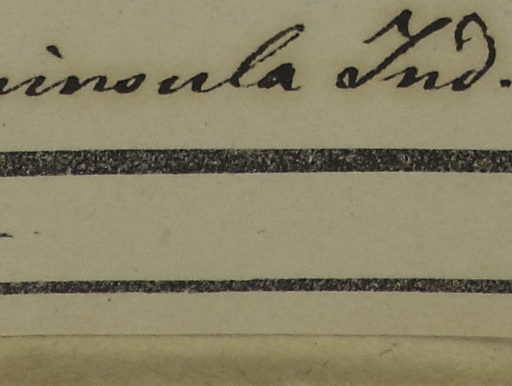 ninsula Ind.